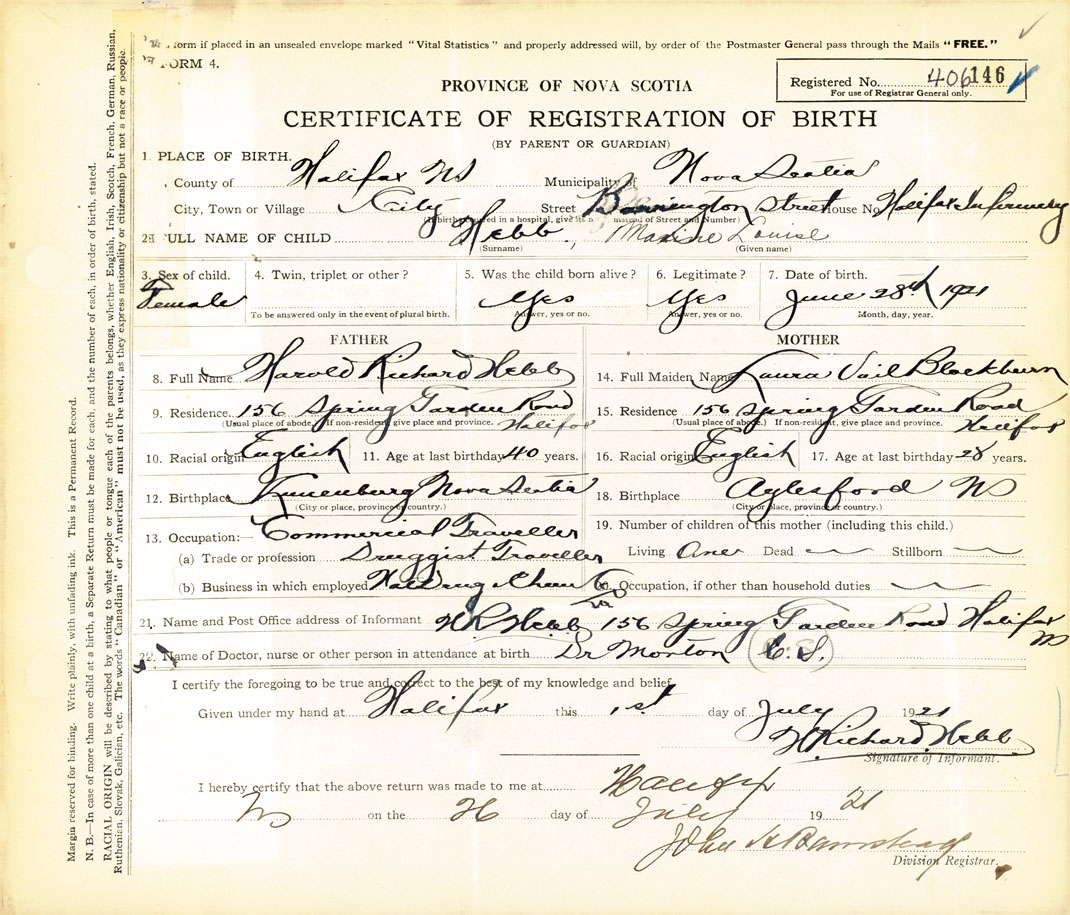 form if placed in an unsealed envelope marked "Vital Statistics" and properly addressed will, by order of the Postmaster General pass through the Mails "FREE."
FORM 4.
Registered No. 406146
For use of Registrar General only.
PROVINCE OF NOVA SCOTIA
CERTIFICATE OF REGISTRATION OF BIRTH
(BY PARENT OR GUARDIAN)
1. PLACE OF BIRTH.
County of Halifax NS Municipality of Nova Scotia
City, Town or Village City Street Barrington Street House No. Halifax Infirmary
(If birth occurred in a hospital, give its name instead of Street and Number)
2. FULL NAME OF CHILD Hebb, Maxine Louise
(Surname) (Given name)
3. Sex of child. 4. Twin, triplet or other? 5. Was the child born alive? 6. Legitimate? 7. Date of birth.
Female Yes Yes June 28th 1921
To be answered only in the event of plural birth. Answer, yes or no. Answer, yes or no. Month, day, year.
FATHER MOTHER
8. Full Name Harold Richard Hebb 14. Full Maiden Name Laura Vail Blackburn
9. Residence 156 Spring Garden Road 15. Residence 156 Spring Garden Road
(Usual place of abode.) If non-resident, give place and province. Halifax (Usual place of abode.) If non-resident, give place and province. Halifax
10. Racial origin English 11. Age at last birthday 40 years. 16. Racial origin English 17. Age at last birthday 28 years.
12. Birthplace Lunenburg Nova Scotia 18. Birthplace Aylesford NS
(City or place, province or country.) (City or place, province or country.)
13. Occupation:— Commercial Traveller 19. Number of children of this mother (including this child.)
(a) Trade or profession Druggist Traveller Living One Dead — Stillborn —
(b) Business in which employed Drug & Chem Co 20. Occupation, if other than household duties —
21. Name and Post Office address of Informant H R Hebb 156 Spring Garden Road Halifax NS
22. Name of Doctor, nurse or other person in attendance at birth Dr Morton C. S.
I certify the foregoing to be true and correct to the best of my knowledge and belief
Given under my hand at Halifax this 1st day of July 1921
H. Richard Hebb
Signature of Informant.
I hereby certify that the above return was made to me at Halifax
NS on the 26 day of July 1921
Division Registrar.
Margin reserved for binding. Write plainly, with unfading ink. This is a Permanent Record.
N. B.—In case of more than one child at a birth, a Separate Return must be made for each, and the number of each, in order of birth, stated.
RACIAL ORIGIN will be described by stating to what people or tongue each of the parents belongs, whether English, Irish, Scotch, French, German, Russian,
Ruthenian, Slovak, Galician, etc. The words "Canadian" or "American" must not be used, as they express nationality or citizenship but not a race or people.